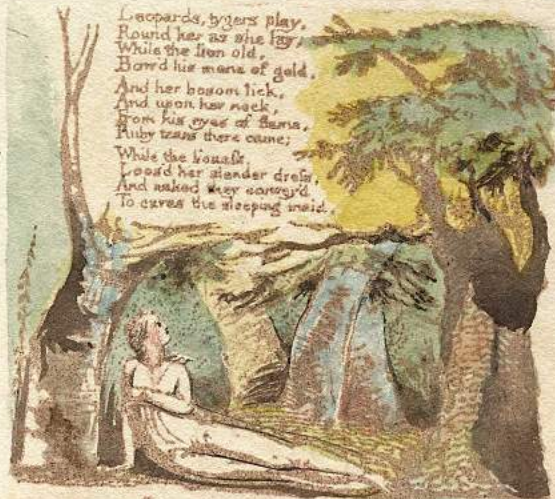 Leopards, tygers play,
Round her as she lay;
While the lion old,
Bow'd his mane of gold,
And her bosom lick,
And upon her neck,
From his eyes of flame,
Ruby tears there came;
While the lioness,
Loos'd her slender dress,
And naked they convey'd
To caves the sleeping maid.